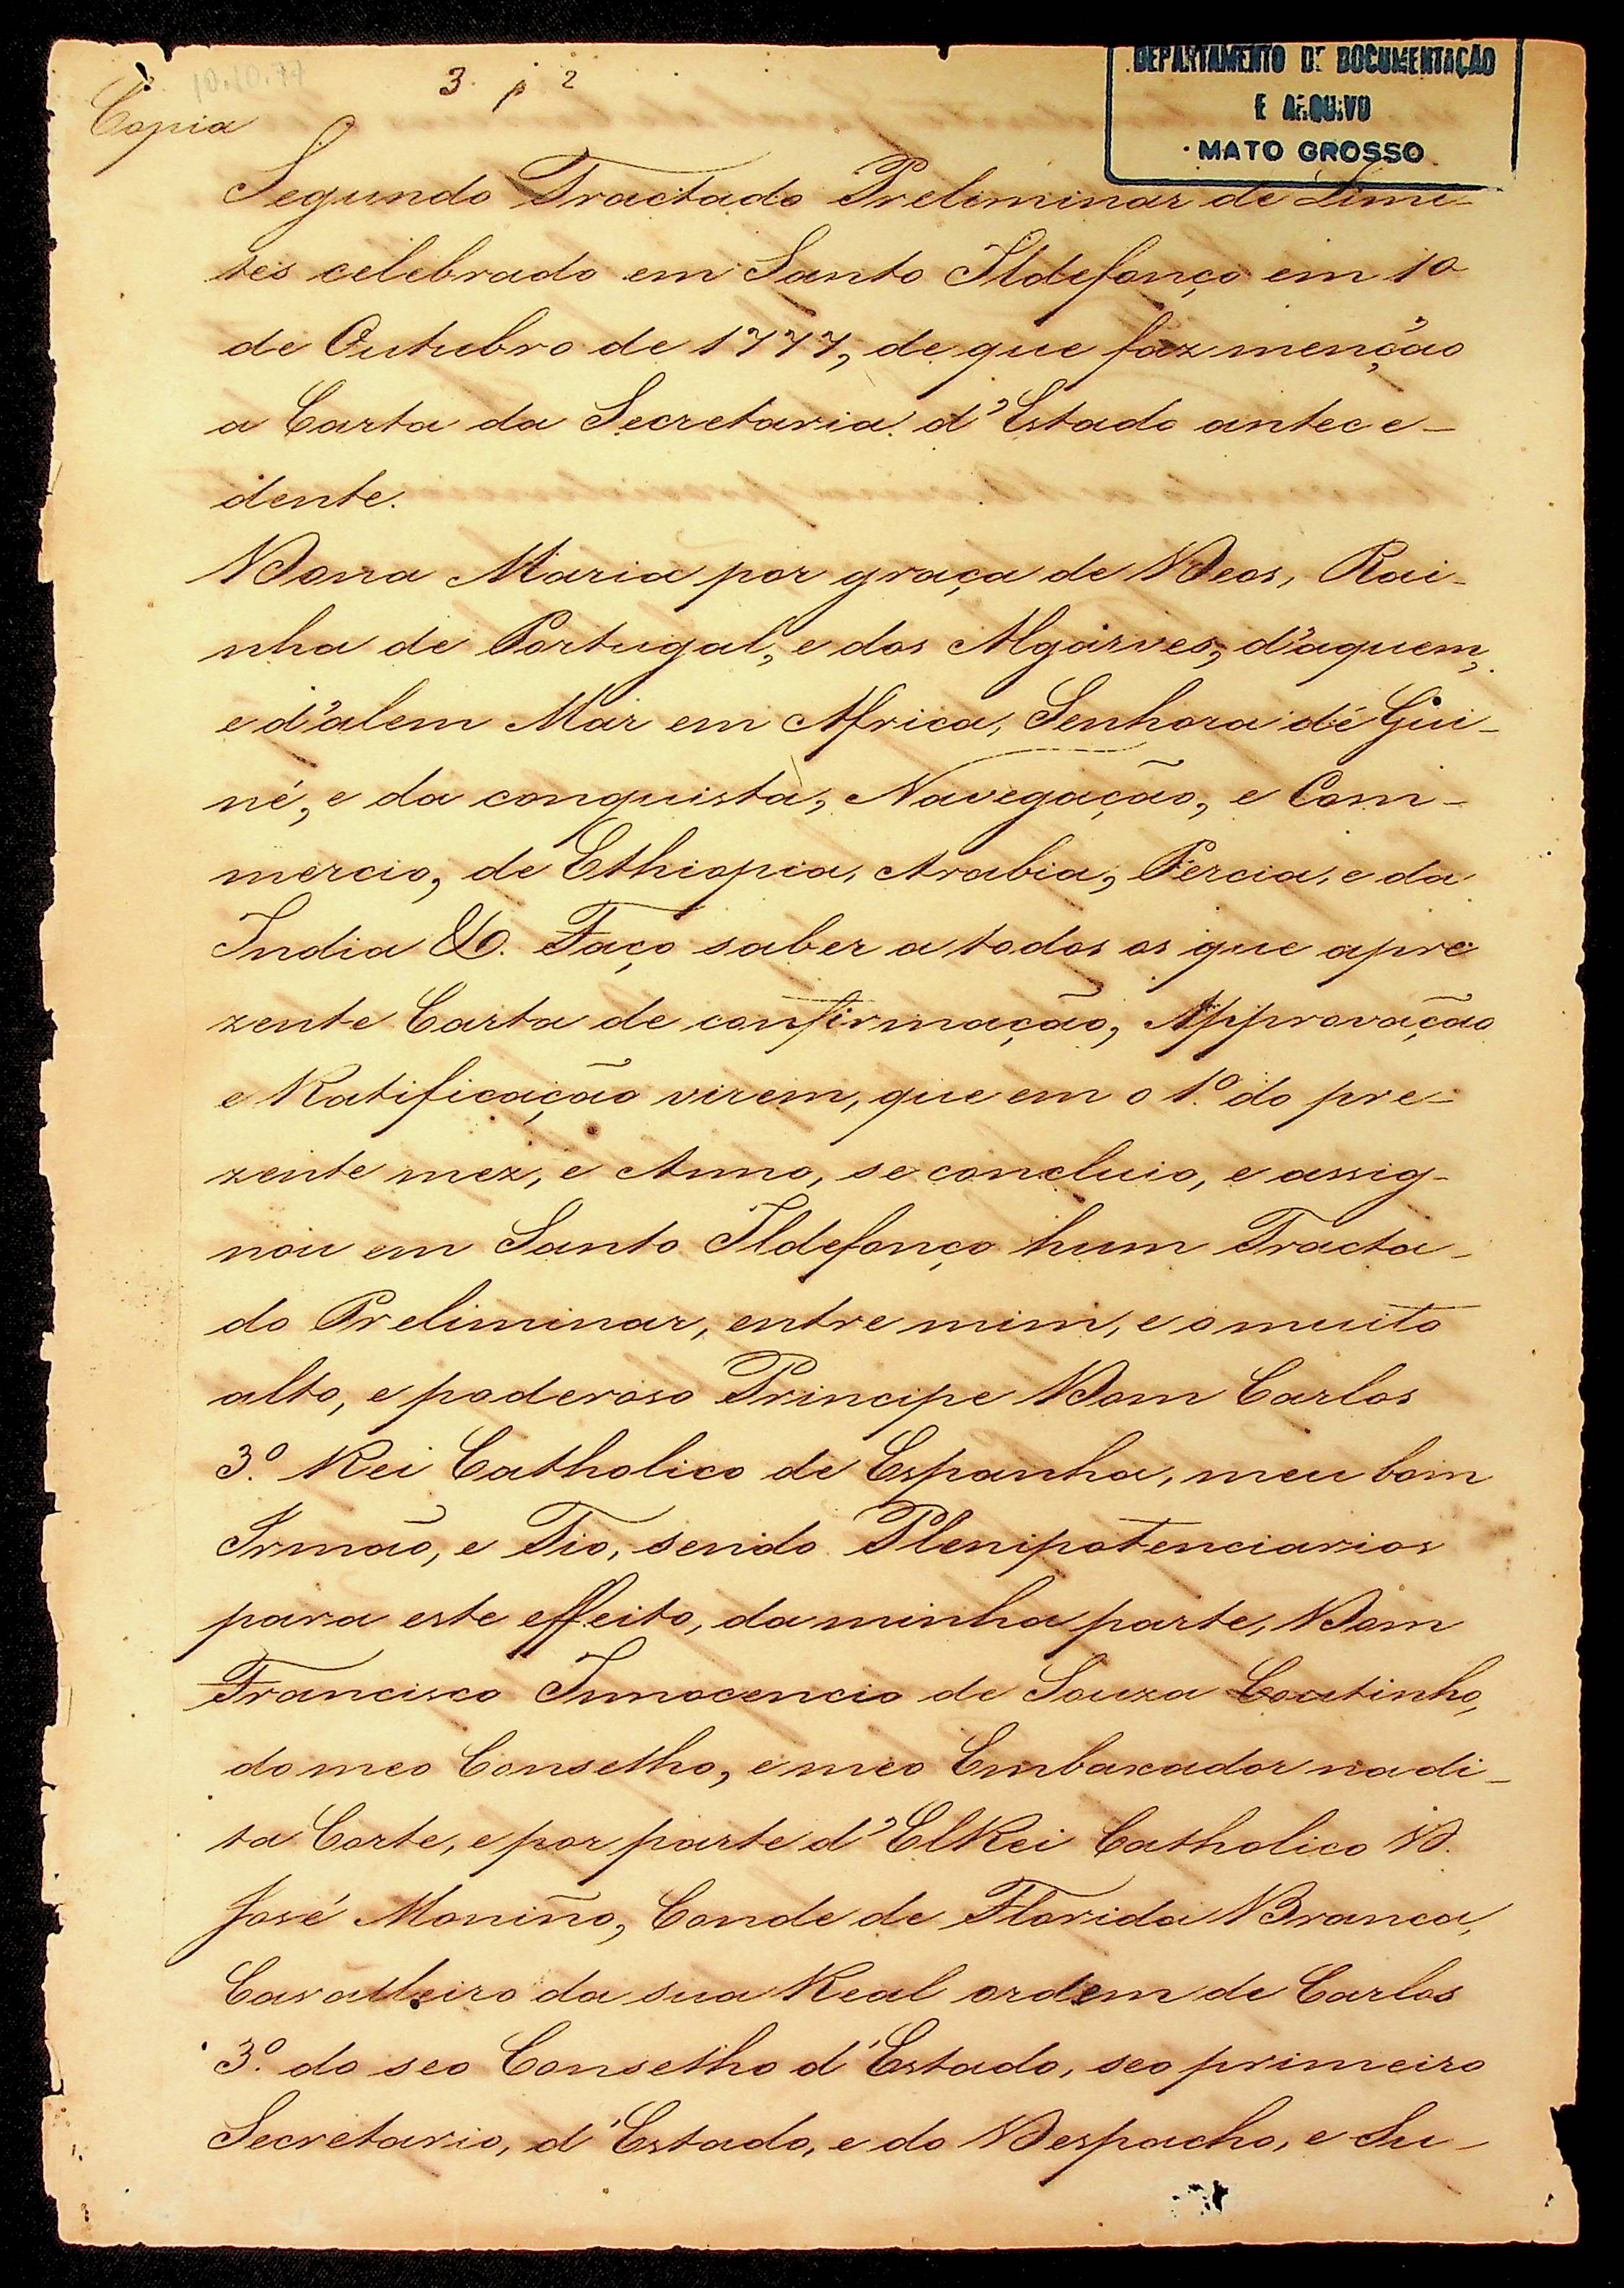 10.10.77
3. p 2
DEPARTAMENTO DE DOCUMENTAÇÃO
E ARQUIVO
MATO GROSSO
Copia
Segundo Tractado Preliminar de Limi-
tes celebrado em Santo Ildefonço em 10
de Outubro de 1777, de que faz menção
a Carta da Secretaria d'Estado antece-
dente.
Dona Maria por graça de Deos, Rai-
nha de Portugal, e dos Algarves, d'aquem,
e d'alem Mar em Africa, Senhora de Gui-
né, e da conquista, Navegação, e Com-
mercio, de Ethiopia, Arabia, Percia, e da
India &. Faço saber a todos os que apre
zente Carta de confirmação, Approvação
e Ratificação virem, que em o 1º. do pre-
zente mez, e Anno, se concluio, e assig-
nou em Santo Ildefonço hum Tracta-
do Preliminar, entre mim, e o muito
alto, e poderoso Principe Dom Carlos
3º. Rei Catholico de Espanha, meu bom
Irmão, e Tio, sendo Plenipotenciarios
para este effeito, da minha parte, Dom
Francisco Innocencio de Souza Coutinho,
do meo Conselho, e meo Embaxador na di-
ta Corte, e por parte d'ElRei Catholico D.
José Moniño, Conde de Florida Branca,
Cavalleiro da sua Real ordem de Carlos
3º. do seo Conselho d'Estado, seo primeiro
Secretario, d'Estado, e do Despacho, e Su-